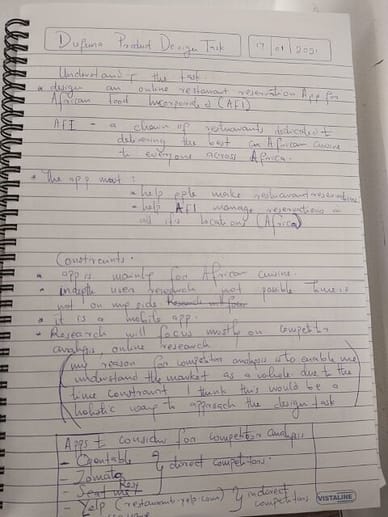 Dufuna Product Design Task
17/01/2021
Understanding the task
design an online restaurant reservation App for
African Food Incorporated (AFI)
AFI - a chain of restaurants dedicated to
delivering the best in African cuisine
to everyone across Africa.
The app must:
help ppl make restaurant reservations
help AFI manage reservations in
all its locations (Africa)
Constraints.
app is mainly for African cuisine.
indepth user research not possible time is
not on my side
it is a mobile app.
Research will focus mostly on competitor
analysis, online research
(my reason for competitor analysis is to enable me
understand the market as a whole due to the
time constraint I think this would be a
holistic way to approach the design task)
Apps to consider for competitor analysis
- Opentable
- Zomato } direct competitors.
- Seat me
- Yelp (restaurant-yelp.com) } indirect
competitors
VISTALINE